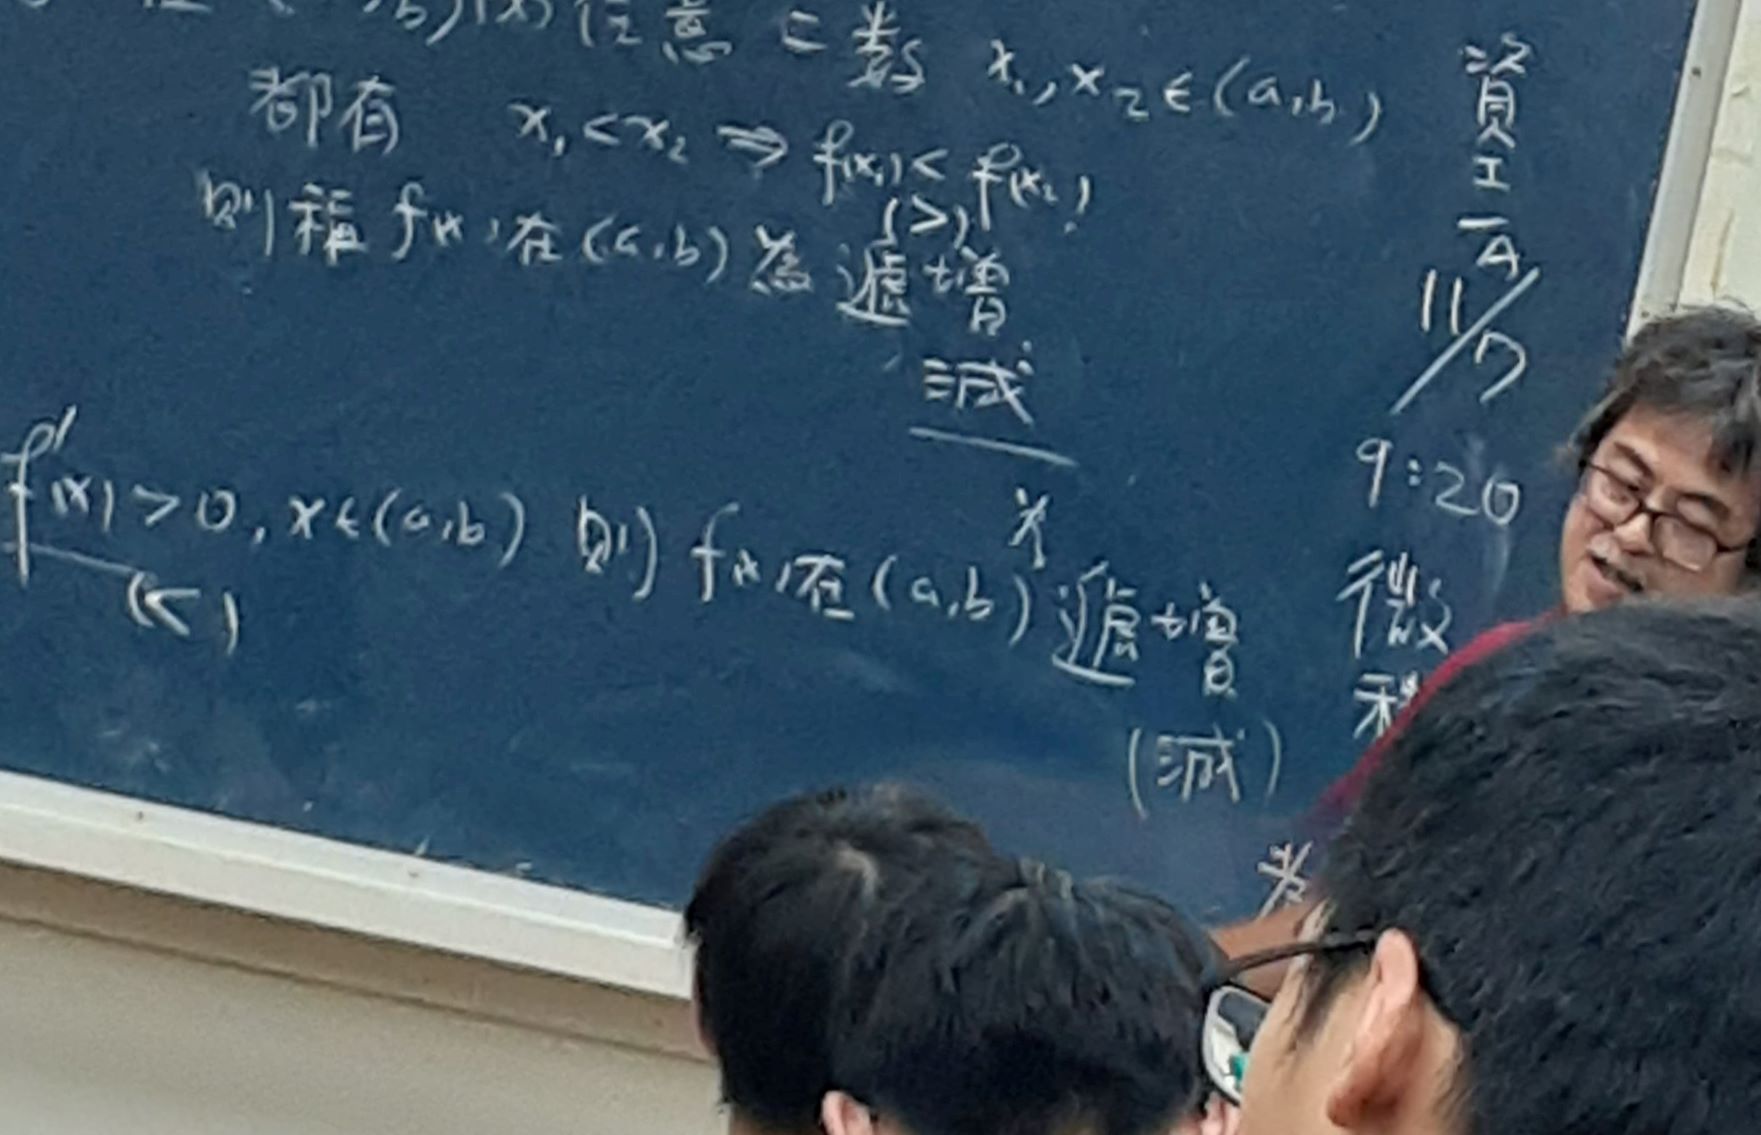 任意二數 x₁,x₂∈(a,b)
都有 x₁<x₂ ⇒ f(x₁)< f(x₂)
(>)
則稱 f(x)在(a,b)為遞增
減
f'(x)>0, x∈(a,b) 則 f(x)在(a,b)遞增
(<)
(減)
資
工
一
A
11/7
9:20
微